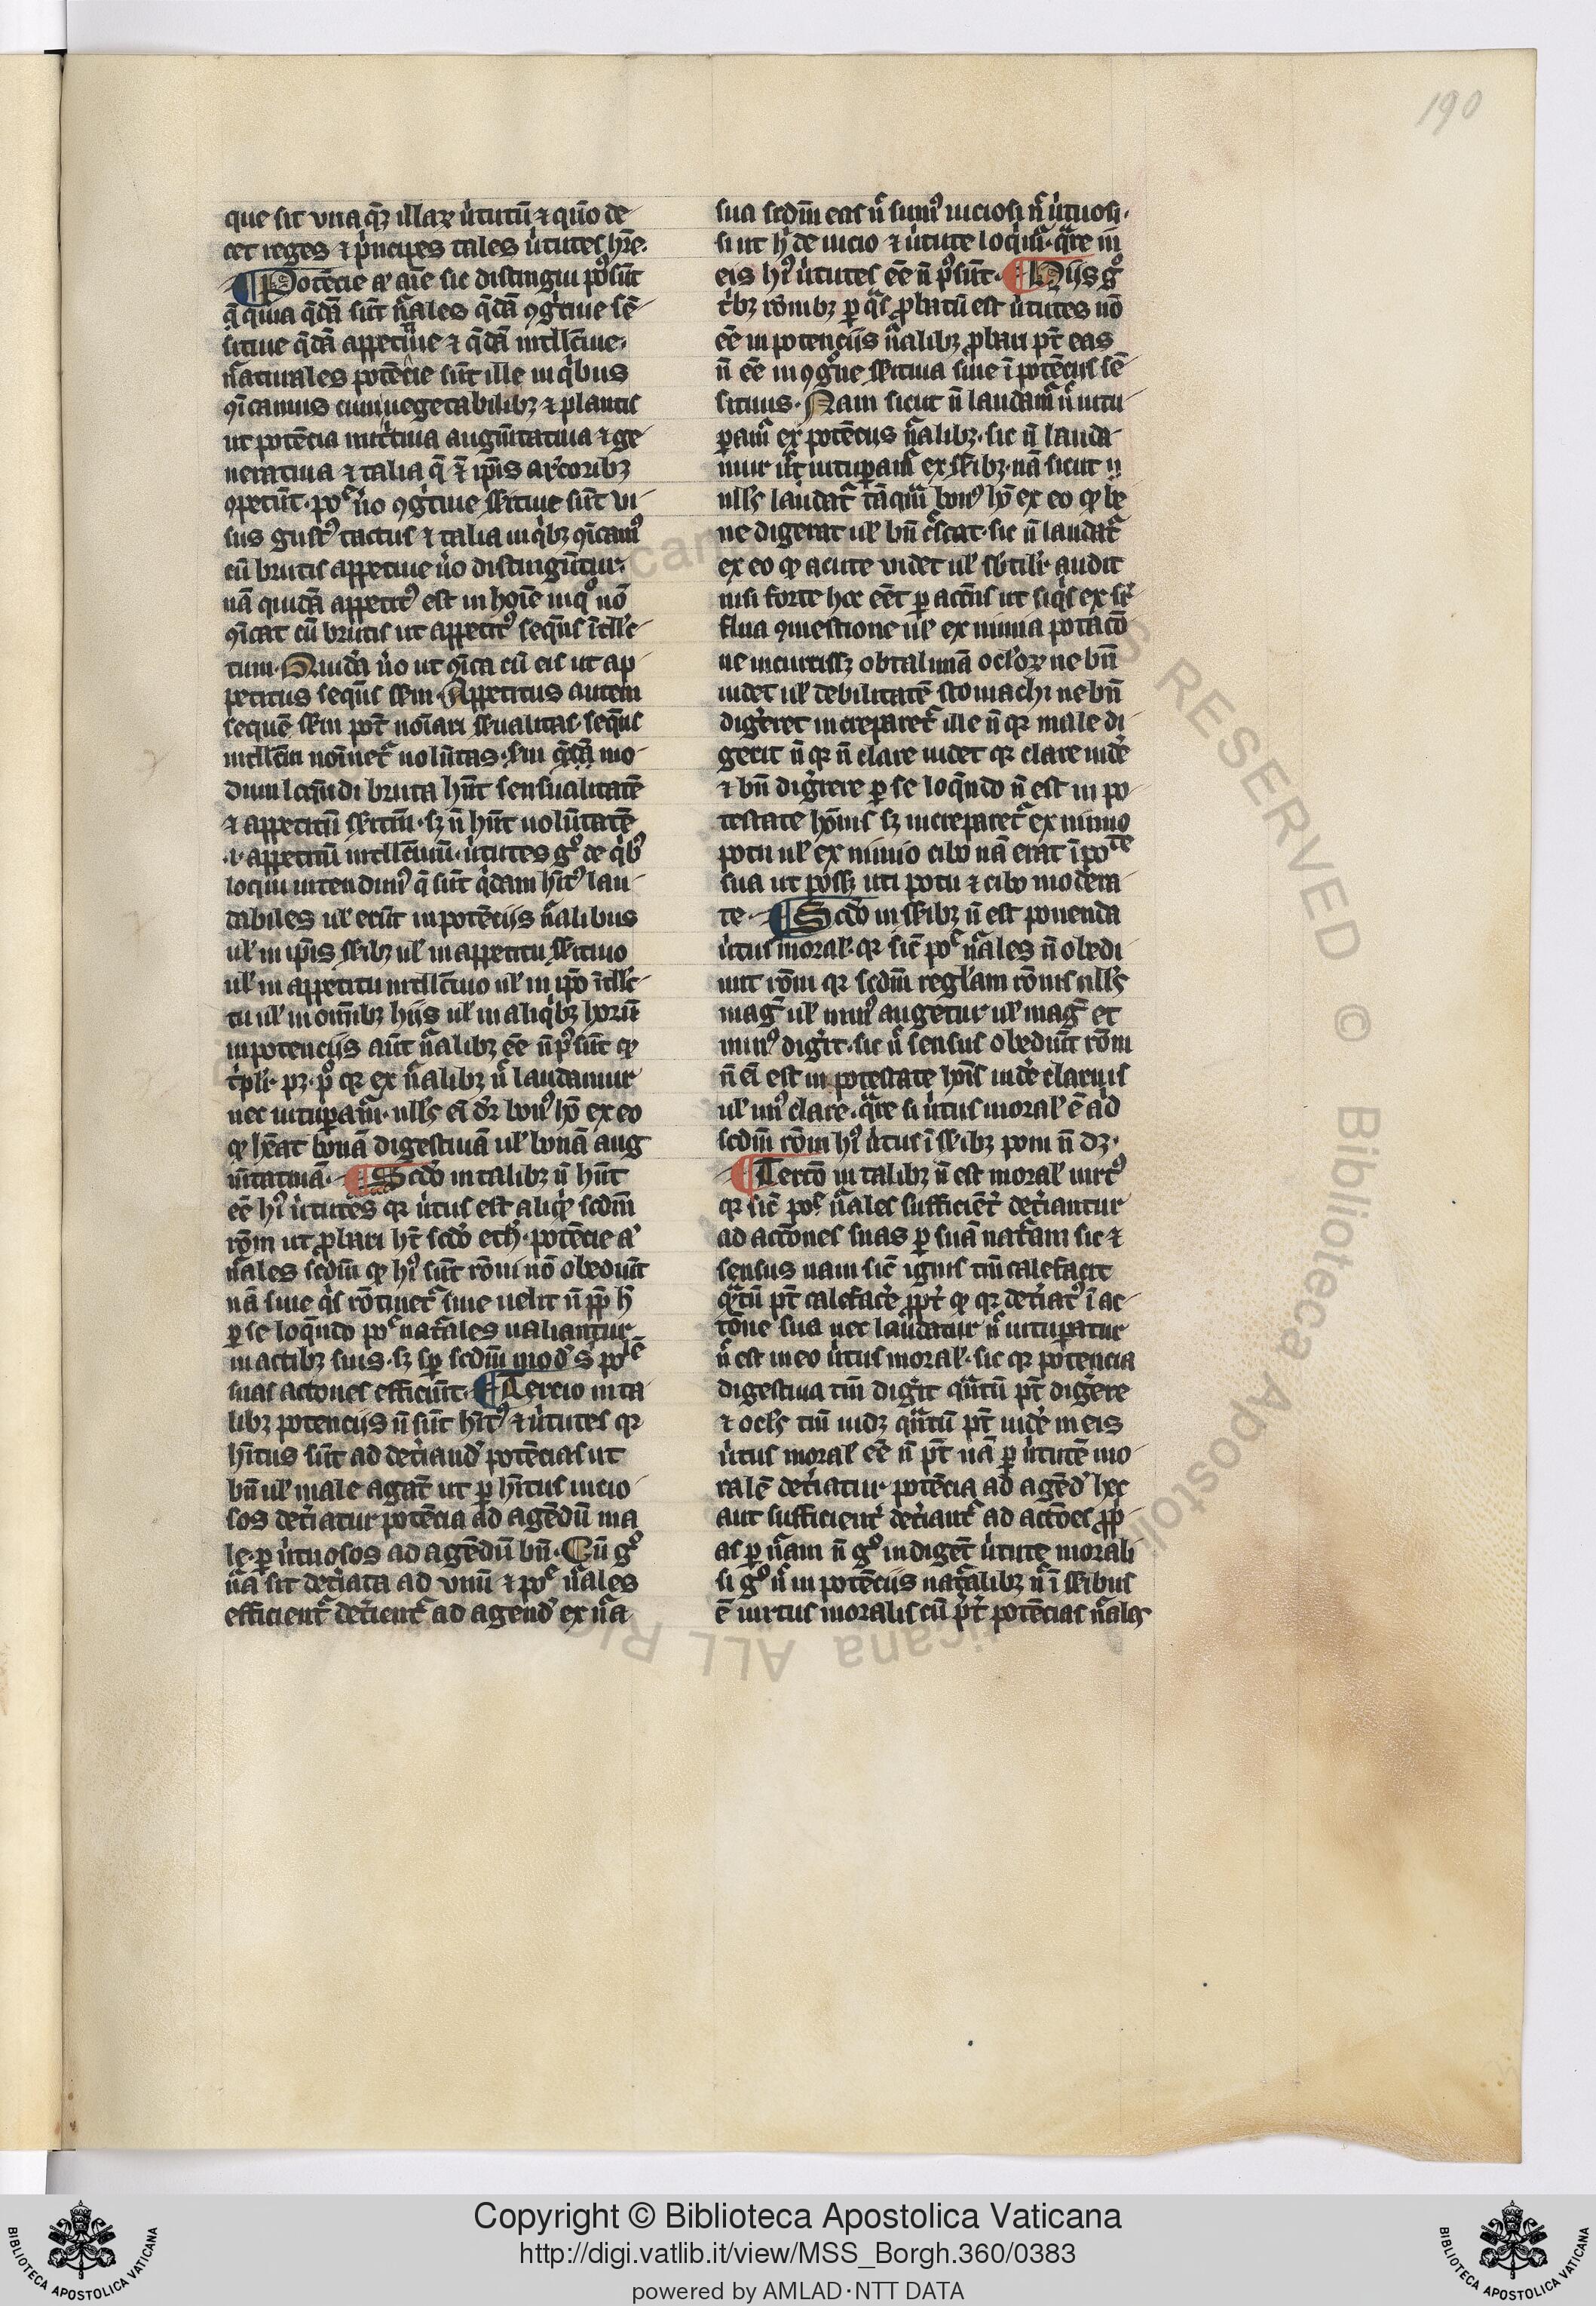 190
que sit vna q̄ꝫ illaꝝ ũtutũ ⁊ quõ de
cet reges ⁊ pͥncipes tales ũtutes hr̄e.
¶ Potēcie aīe sic distingui põt
q̄ quia q̄dā sũt nãles q̄dā ꝯgͥtiue sē
sitiue q̄dā appetitiue ⁊ q̄dā intllc̄iue.
nãturales potēcie sũt ille in qͥbus
ꝯīcamus cum uegetabilibꝫ ⁊ plantis
ut potēcia nutͥtiua augm̄tatiua ⁊ ge
neratiua ⁊ talia q̄ ⁊ ip̄is arͨoribꝫ
ꝯpetũt. poͨ ũo ꝯgͥtiue sn̄itiue sũt ui
sus gustꝰ tactus ⁊ talia in qͥbꝫ ꝯīcamꝰ
cũ brutis appetiue ũo distingũtur.
nā quidā appetitꝰ est in hoīe in qͦ nō
ꝯīcat cũ brutis ut appetitꝰ seqn̄s ītllc̄
tum. Quidā ũo ut ꝯīca cũ eis ut ap
petitus seqn̄s sn̄m. Appetitus autem
sequē sn̄m pōt noīari sn̄ualitas. seqn̄s
intllc̄m noīnetͬ uolũtas. sm̄ q̄dā mo
dum loqn̄di bruta hn̄t sensualitatē
⁊ appetitũ sn̄itiũ. sꝫ ñ hn̄t uolũtatē
.i. appetitũ intllc̄iuũ. ũtutes gͦ de qͥbꝰ
loqui intendimꝰ q̄ sũt q̄dam hītꝰ lau
dabiles ul̄ erũt in potēcijs nãlibus
ul̄ in ip̄is sn̄ibꝫ ul̄ in appetitu sn̄itiuo
ul̄ in appetitu intllc̄iuo ul̄ in ip̄o ītllc̄
tu ul̄ in om̄ibꝫ hijs ul̄ in aliqͥbꝫ horũ
in potencijs aũt nãlibꝫ eē ñ pn̄t ꝙ
tͥplr̄. pꝫ. pͦ qꝛ ex nãlibꝫ ñ laudamur
nec uitupam̄. nulls̄ ei dr̄ bonꝰ hō ex eo
ꝙ hēat bonā digestiuā ul̄ bonā aug
m̄tatiuā. ¶ Scdo in talibꝫ ñ hn̄t
eē hͥ ũtutes qꝛ ũtus est aliqͥd scdm̄
rōm ut ꝓbari hꝫ scdo ethͥ. potēcie aͥ
nãles scdm̄ ꝙ hͥ sũt rōni nō obediũt
nā siue qͥs rōtinetͬ siue uelit ñ ꝓp̄ h̄
ꝑ se loqn̄do poͨ nat̄ales ualiantur
in actibꝫ suis. sꝫ sꝑ scdm̄ modͫ sͥ poͭͤ
suas actones efficiũt. ¶ Tercio in ta
libꝫ potencijs ñ sũt hītꝰ ⁊ ũtutes qꝛ
hītus sũt ad det̄iandͫ potēcias ut
bn̄ ul̄ male agāt ut ꝑ hītus uicio
sos det̄iatur potēcia ad agēdũ ma
le. ꝑ ũtuosos ad agēdũ bn̄. Cũ gͦ
nã sit det̄iata ad vnũ ⁊ poͨ nãles
efficientͬ det̄ientͬ ad agendͫ ex nã
sua scdm̄ eas ñ sumꝰ uiciosi ñ ũtuosi.
si ut h̄ de uicio ⁊ ũtute loqͥm̄. qͣre in
eis hͥ ũtutes eē ñ pn̄t. ¶ Hijs gͦ
tͥbꝫ rōnibꝫ ꝑ qͣs ꝓbatũ est ũtutes nō
eē in potencijs nãlibꝫ ꝓbari pt̄ eas
ñ eē in ꝯgͥne sn̄itiua siue ī potēcijs sē
sitiuis. Nam sicut ñ laudamͬ ñ uitu
ꝑamͬ ex potēciis nãlibꝫ. sic ñ lauda
mur nͨ uituꝑamͬ ex sn̄ibꝫ. nā sicut n
ulls̄ laudatͬ tāqͣm bonꝰ hō ex eo ꝙ be
ne digerat ul̄ bn̄ cͥscat. sic ñ laudatͬ
ex eo ꝙ acute videt ul̄ sb̄tilr̄ audit
nisi forte hoc eēt ꝑ accn̄s ut siqͥs ex suͥ
flua ꝯmestione ul̄ ex nimia potacō
ne incurrissꝫ obtalmiā oclōꝝ ne bn̄
uidet ul̄ debilitatē stomachi ne bn̄
digͥeret increparetͬ ille ñ qꝛ male di
gerit ñ qꝛ ñ clare uidet qꝛ clare uidē
⁊ bn̄ digͥrere ꝑ se loqn̄do ñ est in po
testate hoīnis sꝫ increparetͬ ex nimio
potu ul̄ ex nimio cibo nā erat ī poͭͤ
sua ut possꝫ uti potu ⁊ cibo modera
te. ¶ Scdo in sn̄ibꝫ ñ est ponenda
ũtus moral̄. qꝛ sic̄ poͨ nãles ñ obedi
unt rōni qꝛ scdm̄ regl̄am rōnis nulls̄
magͥ ul̄ minꝰ augētur ul̄ magͥ et
minꝰ digͥit. sic ñ sensus obediũt rōni
ñ ei est in potestate hoīs uidē clarius
ul̄ minꝰ clare. qͣre si ũtus moral̄ ē ad
scdm̄ rōm hͥ ũtus ī sn̄ibꝫ poni ñ dꝫ.
¶ Tercō in talibꝫ ñ est moral̄ uirtꝰ
qꝛ sic̄ poͨ nãles sufficiēt̄ det̄iantur
ad actōnes suas ꝑ suā nat̄am sic ⁊
sensus nam sic̄ ignis tm̄ calefacit
qͣtũ pt̄ calefacē ꝓpt̄ ꝙ qꝛ det̄iatꝰ ī ac
tōne sua nec laudatur ñ uituꝑatur
ñ est in eo ũtus moral̄. sic qꝛ potencia
digestiua tm̄ digͥit qn̄tũ pt̄ digͥere
⁊ ocls̄ tm̄ uidꝫ qn̄tũ pt̄ uidē in eis
ũtus moral̄ eē ñ pt̄ nā ꝑ ũtutē mo
ralē det̄iatur potēcia ad agēdͫ hec
aut sufficient̄ det̄iantͬ ad actōes ꝓp̄
as ꝑ nãam ñ gͦ indigēt ũtute morali
si gͦ ñ in potēciis nat̄alibꝫ ñ ī sn̄ibus
ē uirtus moralis cũ pt̄ potēcias nãles
Copyright © Biblioteca Apostolica Vaticana
http://digi.vatlib.it/view/MSS_Borgh.360/0383
powered by AMLAD·NTT DATA